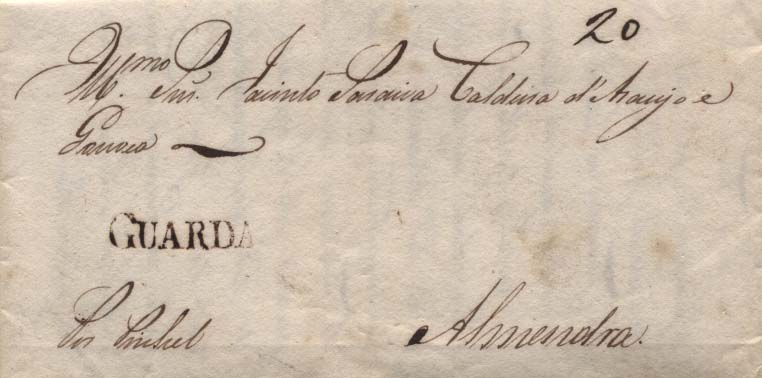 20
Illmo. Snr. Jacinto Saraiva Caldeira d'Araujo e
GUARDA
Por Pinhel
Almendra.